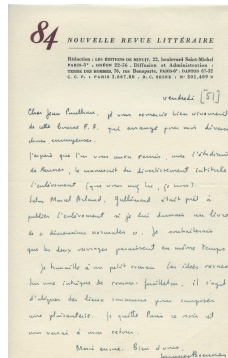 84 NOUVELLE REVUE LITTÉRAIRE
Rédaction : LES ÉDITIONS DE MINUIT, 22, boulevard Saint-Michel
PARIS-6e, ODÉON 22-56, Diffusion et Administration :
TERRE DES HOMMES, 76, rue Bonaparte, PARIS-6e; DANTON 67-52
vendredi [51]
Cher Jean Paulhan, je vous remercie bien vivement
de cette
J'espère que l'on vous aura remis, avec l'étudiante
de Rennes, le manuscrit du divertissement intitulé
l'enlèvement (que vous avez lu, je crois).
Selon Marcel Arland, Gallimard était prêt à
publier l'enlèvement si je lui donnais un livre
de « dimensions normales ». Je souhaiterais
que les deux ouvrages paraissent en même temps.
Je travaille à un petit roman
sur une intrigue de roman-feuilleton, il s'agit
d'utiliser des lieux communs pour composer
une plaisanterie. Je quitte Paris ce soir et
vous verrai à mon retour.
Merci encore. Bien à vous,